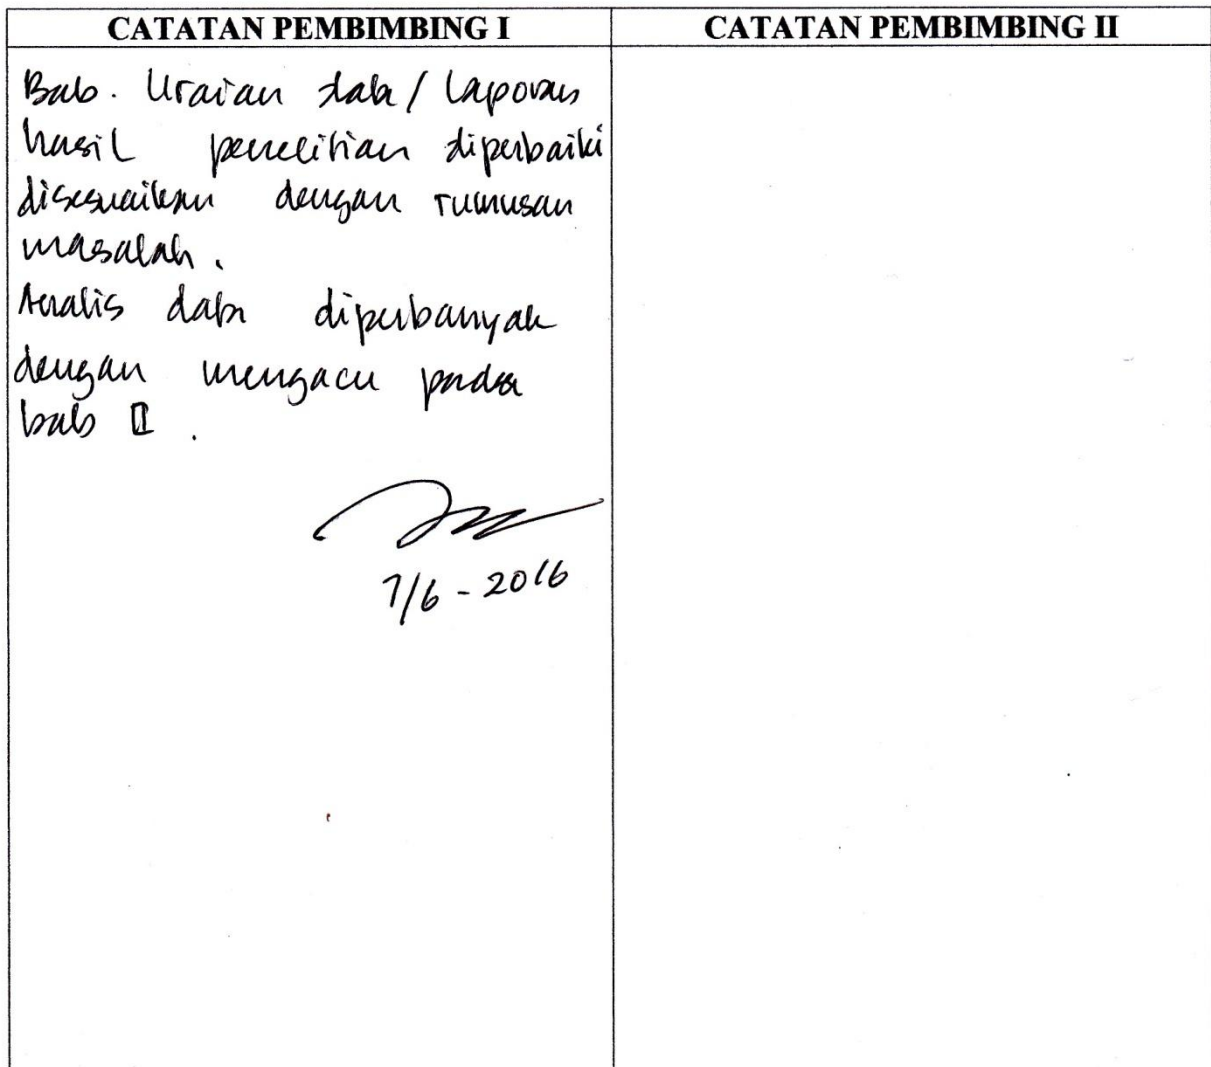 CATATAN PEMBIMBING I
CATATAN PEMBIMBING II
Bab. Uraian data / Laporan
hasil penelitian diperbaiki
disesuaikan dengan rumusan
masalah.
Analis data diperbanyak
dengan mengacu pada
bab II.
7/6 - 2016